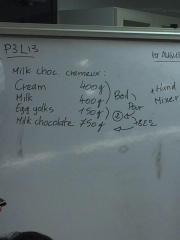 P3L13
Milk choc. cremeux:
Cream 400g
Milk 400g
Egg yolks 150g
Milk chocolate 750g
Boil
Pour
+ Hand
Mixer